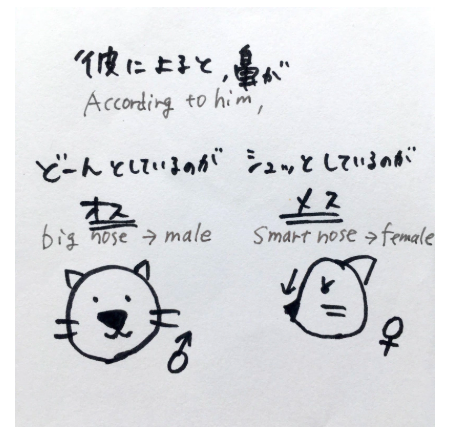 “彼によると,鼻が
According to him,
どーんとしているのが シュッとしているのが
オス メス
big nose → male Smart nose → female
♂ ♀